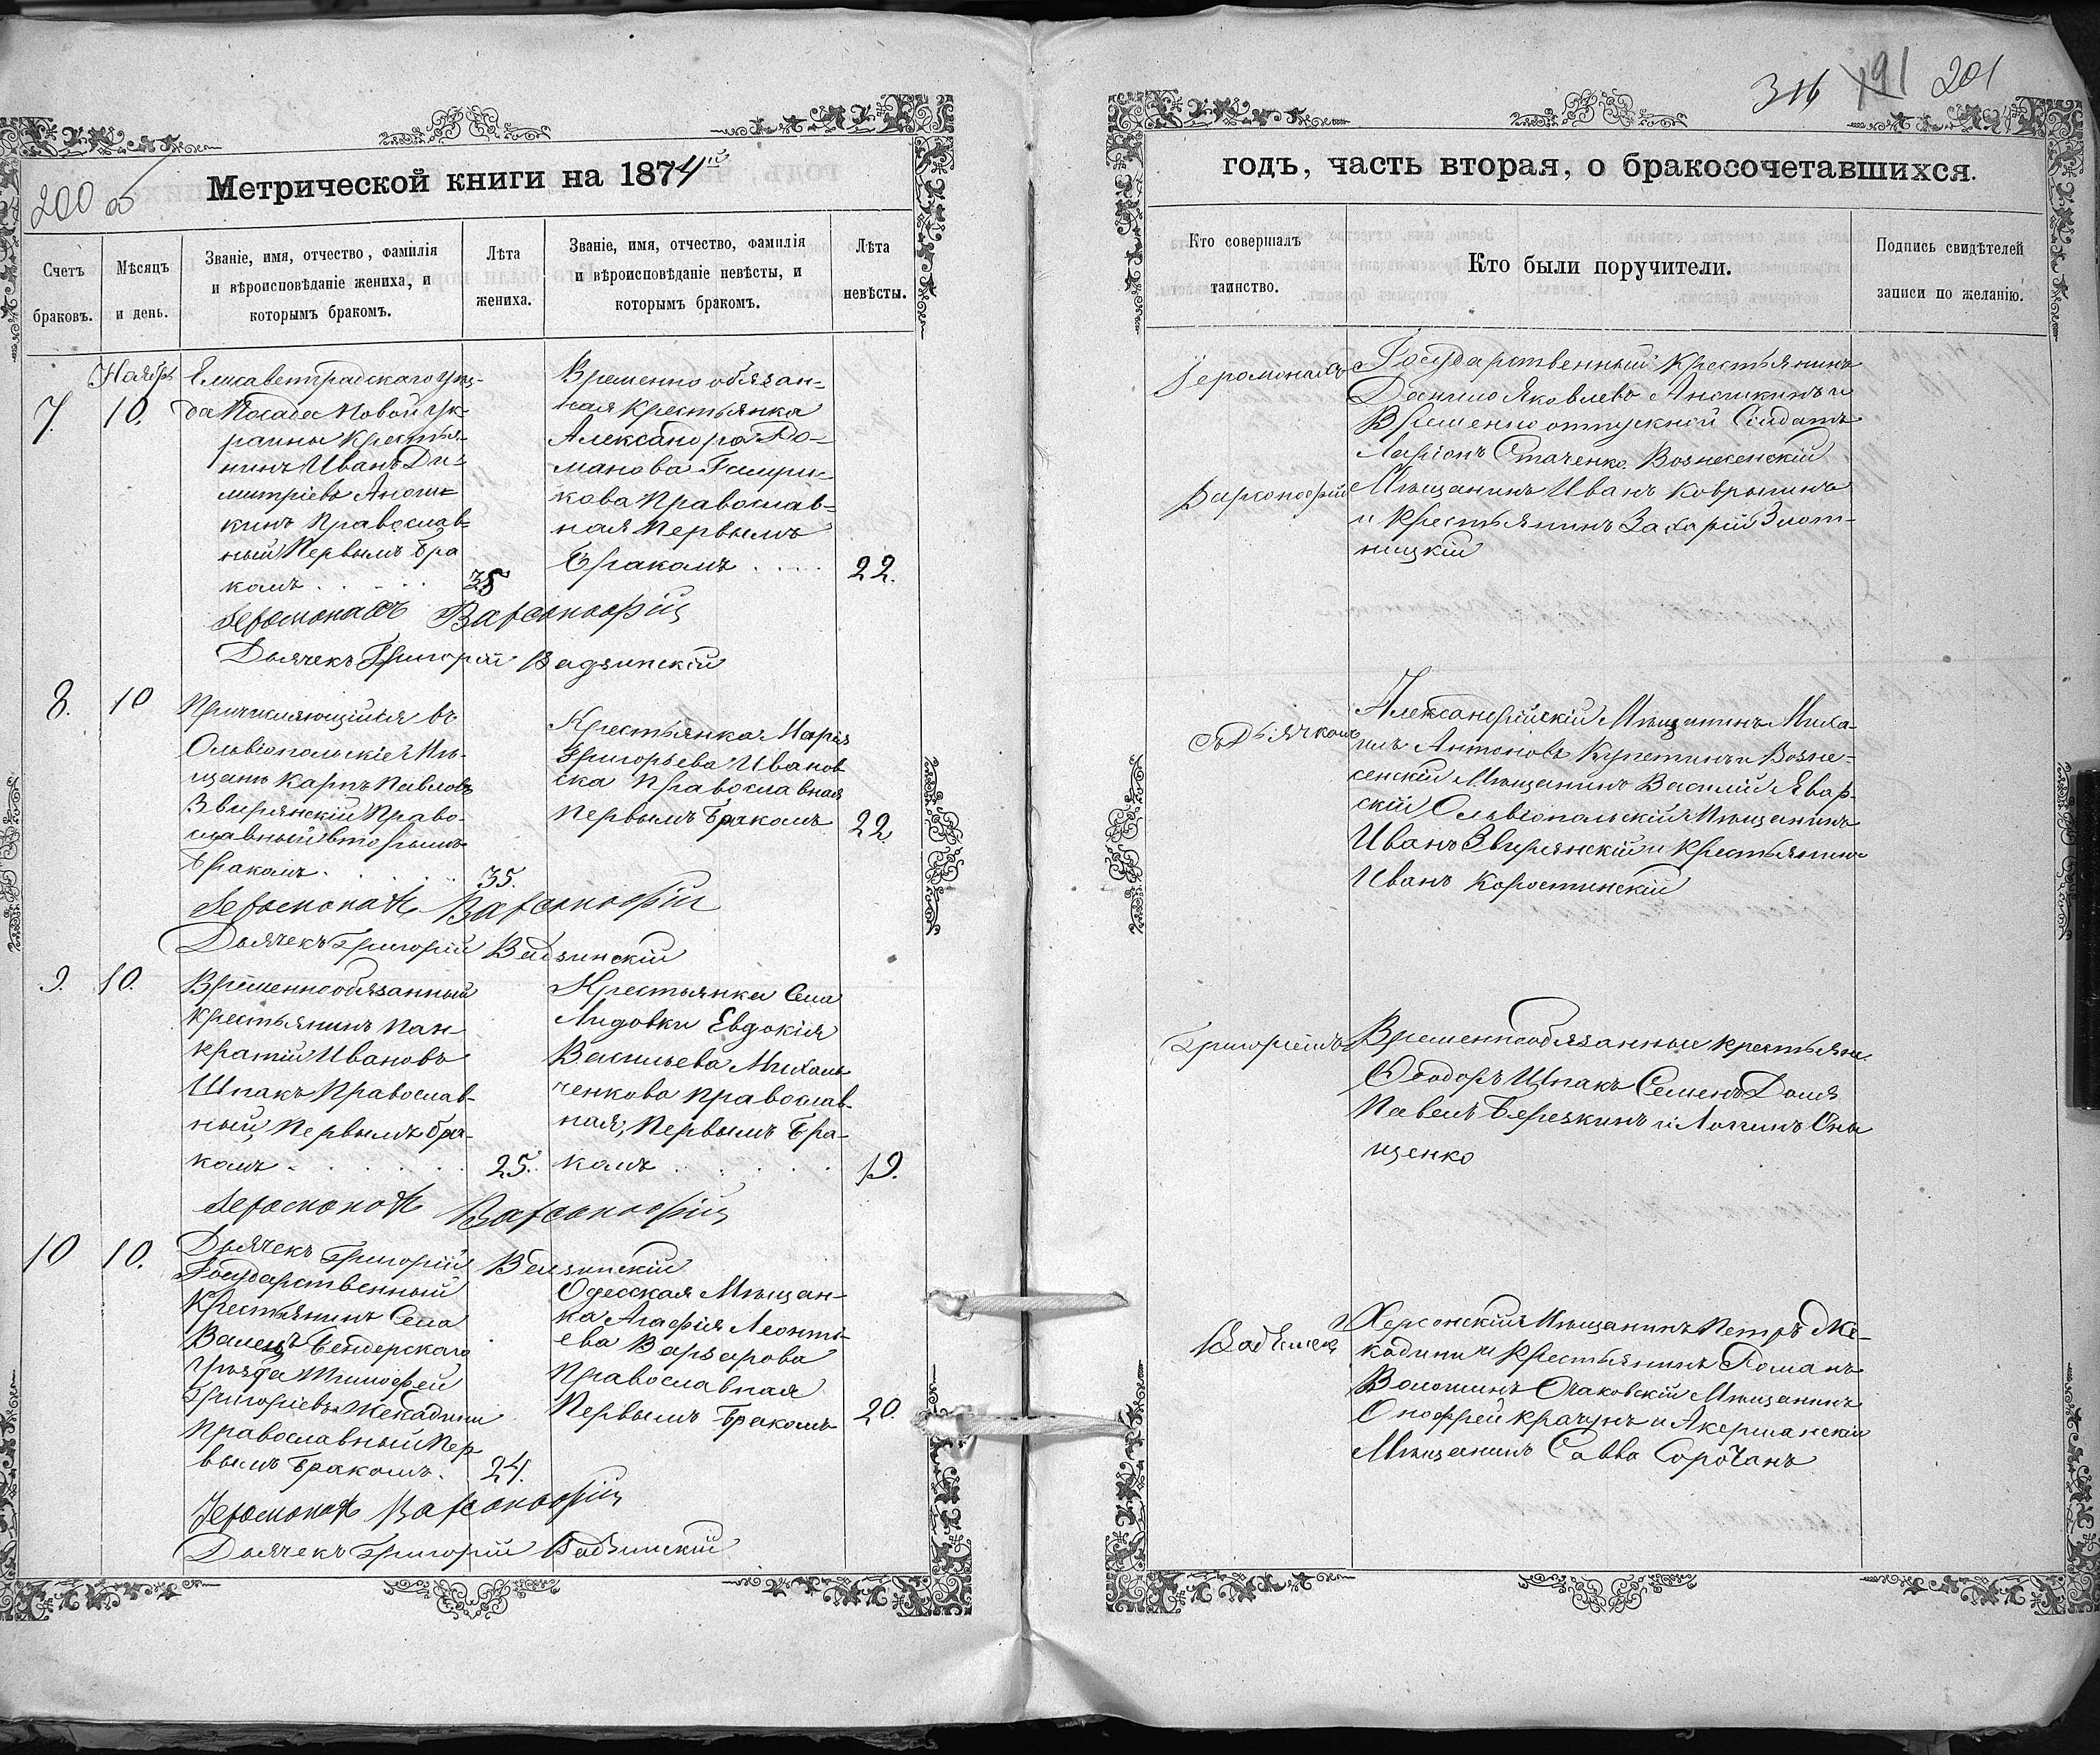 200 об
Метрической книги на 1874й
Счетъ браковъ.
Мѣсяцъ и день.
Званіе, имя, отчество, фамилія
и вѣроисповѣданіе жениха, и
которымъ бракомъ.
Лѣта
жениха.
Званіе, имя, отчество, фамилія
и вѣроисповѣданіе невѣсты, и
которымъ бракомъ.
Лѣта
невѣсты.
Ноябрь
7. 10.
Елисаветградскаго уѣз-
да Посада Новой Ук-
раины Крестья-
нинъ Иванъ Ди-
митріевъ
кинъ Православ-
ный Первымъ бра
комъ
35
Временно обязан-
ная Крестьянка
Александра Ро-
манова
кова Православ-
ная Первымъ
Бракомъ
22.
Іеромонахъ Варсонофій
Дьячекъ Григорій Вадзинскій
8. 10
Причисляющійся въ
Ольвіопольскіе Мѣ-
щане Карпъ Павловъ
Звирянскій Право-
славный вторымъ
Бракомъ
35.
Крестьянка Марія
Григорьева Иванов
ска Православная
Первымъ Бракомъ
22
Іеромонахъ Варсонофій
Дьячекъ Григорій Вадзинскій
9. 10.
Временнообязанный
Крестьянинъ Пан
кратій Ивановъ
Шпакъ Православ-
ный, Первымъ бра-
комъ
25.
Крестьянка Села
Лидовки Евдокія
Васильева Михаль
ченкова Православ-
ная, Первымъ Бра-
комъ
19.
Іеромонахъ Варсонофій
Дьячекъ Григорій Вадзинскій
10 10.
Государственный
Крестьянинъ Села
Бендерскаго
Уѣзда Тимофей
Григоріевъ Жекадини
Православный Пер
вымъ Бракомъ.
24.
Одесская Мѣщан-
ка Агафія Леонті-
ева Варварова
Православная
Первымъ Бракомъ
20.
Іеромонахъ Варсонофій
Дьячекъ Григорій Вадзинскій
316 191 201
годъ, часть вторая, о бракосочетавшихся.
Кто совершалъ
таинство.
Кто были поручители.
Подпись свидѣтелей
записи по желанію.
Іеромонахъ
Варсонофій
Государственный Крестьянинъ
Данило Яковлевъ и
Временно отпускной Солдатъ
Ларіонъ Стаченко Вознесенскій
Мѣщанинъ Иванъ Ковръгинъ
и Крестьянинъ Захарій Злот-
ницкій
съ Дьячкомъ
Александрійскій Мѣщанинъ Миха-
илъ Антоновъ Купетинъ и Возне-
сенскій Мѣщанинъ Василій Явор-
скій Ольвіопольскій Мѣщанинъ
Иванъ Звирянскій и Крестьянинъ
Иванъ Коростинскій
Григоріемъ
Временнообязанные крестьяне
Феодоръ Шпакъ Семенъ Доля
Павелъ Березкинъ и Логинъ Они
щенко
Вадзинск
Херсонскій Мѣщанинъ Петръ Же-
кадини и Крестьянинъ Романъ
Волошинъ Очаковскій Мѣщанинъ
Онофрей Крачунъ и Акерманскій
Мѣщанинъ Савва Сорочанъ